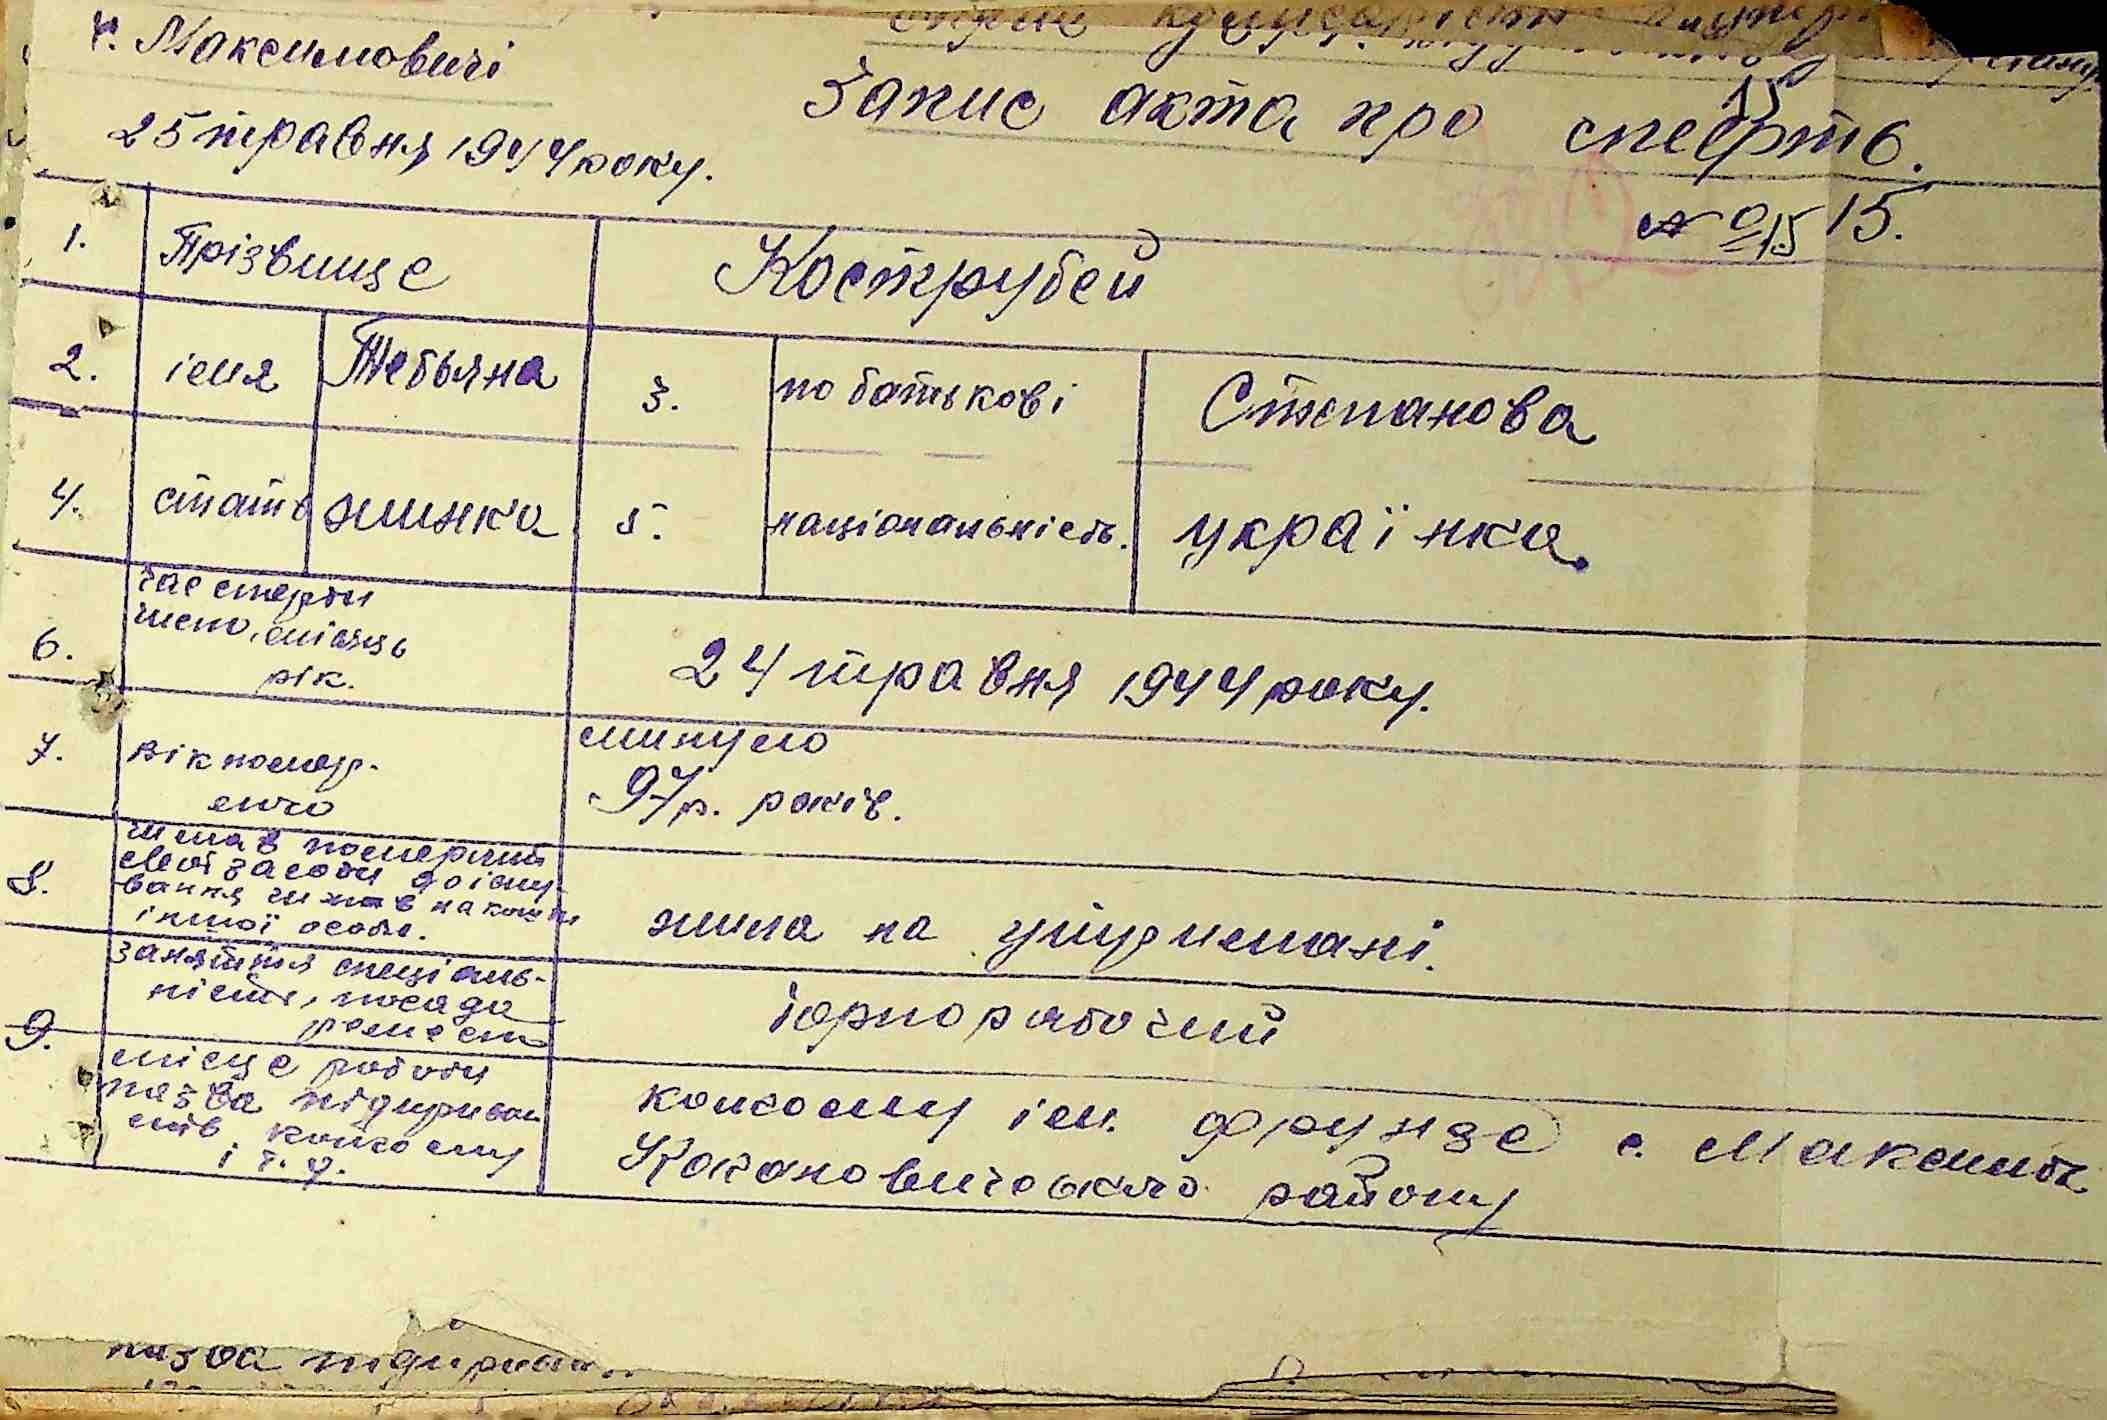 с. Максимовичі
25 травня 1944 року.
Запис акта про смерть.
15
№ 15 15.
1. Прізвище Кострубей
2. імя Тетьяна 3. по батькові Степанова
4. стать жинка 5. національність. українка.
6. час смерти
число, місяць
рік.
24 травня 1944 року.
7. вік помер-
лого
минуло
97 р. років.
8. чи мав померший
свої засоби до існу-
вання чи жив на кошти
іншої особи.
жила на уждивенані.
9. заняття спеціаль-
ність, посада
ремест
чорнорабочий
місце роботи
назва підприєм
ств колхозу
і т. д.
колхозу ім. Фрунзе с. Максимов
Кагановичського району
назва підприєм